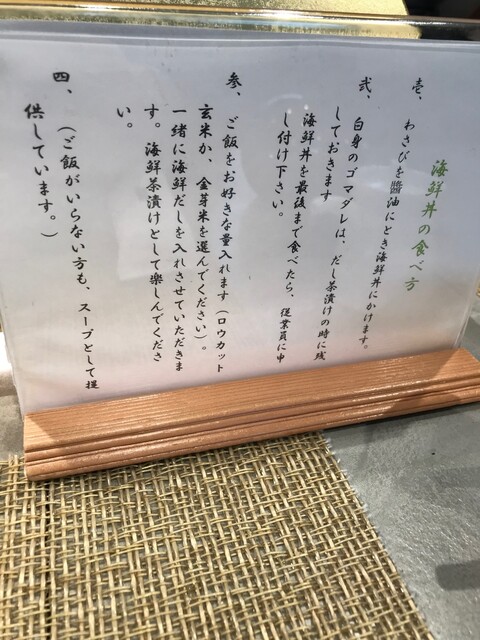 海鮮丼の食べ方
壱、 わさびを醬油にとき海鮮丼にかけます。
弐、 白身のゴマダレは、だし茶漬けの時に残
しておきます
海鮮丼を最後まで食べたら、従業員に申
し付け下さい。
参、 ご飯をお好きな量入れます(ロウカット
玄米か、金芽米を選んでください)。
一緒に海鮮だしを入れさせていただきま
す。海鮮茶漬けとして楽しんでくださ
い。
四、 (ご飯がいらない方も、スープとして提
供しています。)